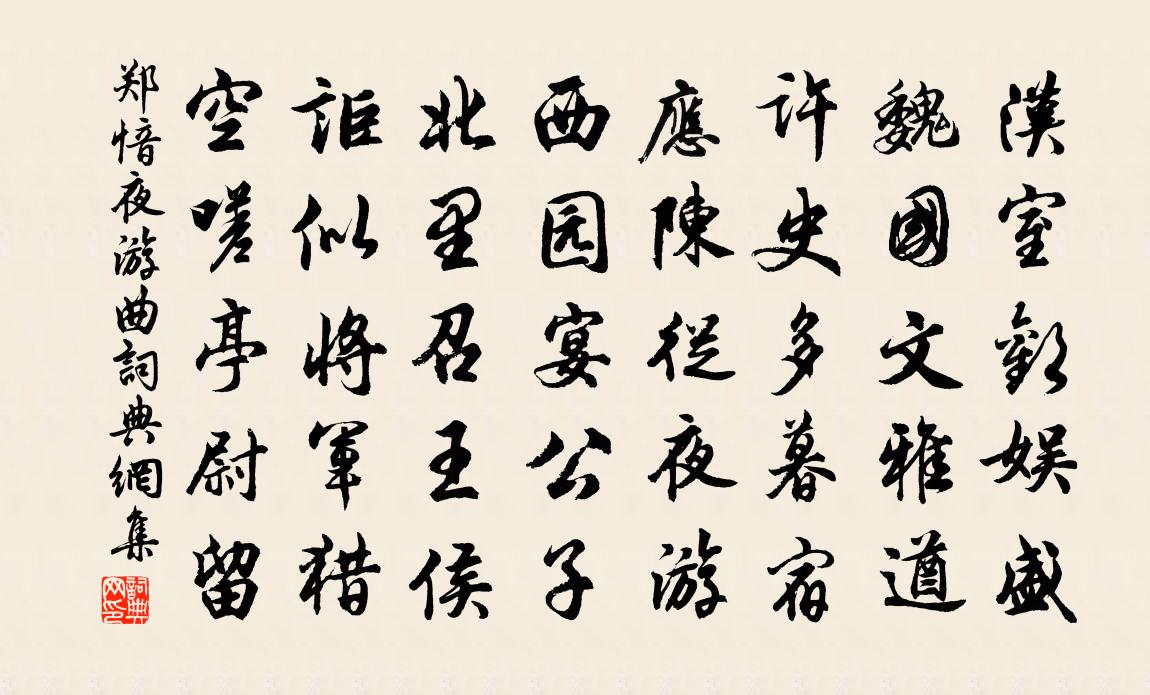 漢室歡娱盛
魏國文雅遒
許史多暮宿
應陳從夜游
西园宴公子
北里召王侯
詎似將軍猎
空嗟亭尉留
郑愔夜游曲詞典網集
詞典网印